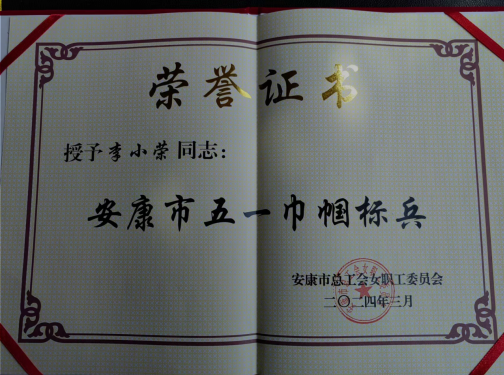 荣誉证书
授予李小荣同志：
安康市五一巾帼标兵
安康市总工会女职工委员会
二〇二四年三月